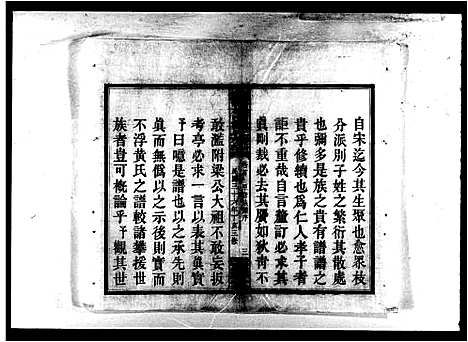 自宋迄今其生聚也愈眾枝
分派別子姓之繁衍其散處
也彌多是族之貴有譜譜之
貴乎修續也為仁人孝子者
詎不重哉自言釐訂必求其
真則裁必去其贗如狄青不
敢濫附梁公大祖不敢妄扳
考亭必求一言以表其真實
予曰噫是譜也以之承先則
真而無偽以之示後則實而
不浮黃氏之譜較諸攀援世
族者豈可概論乎予觀其世